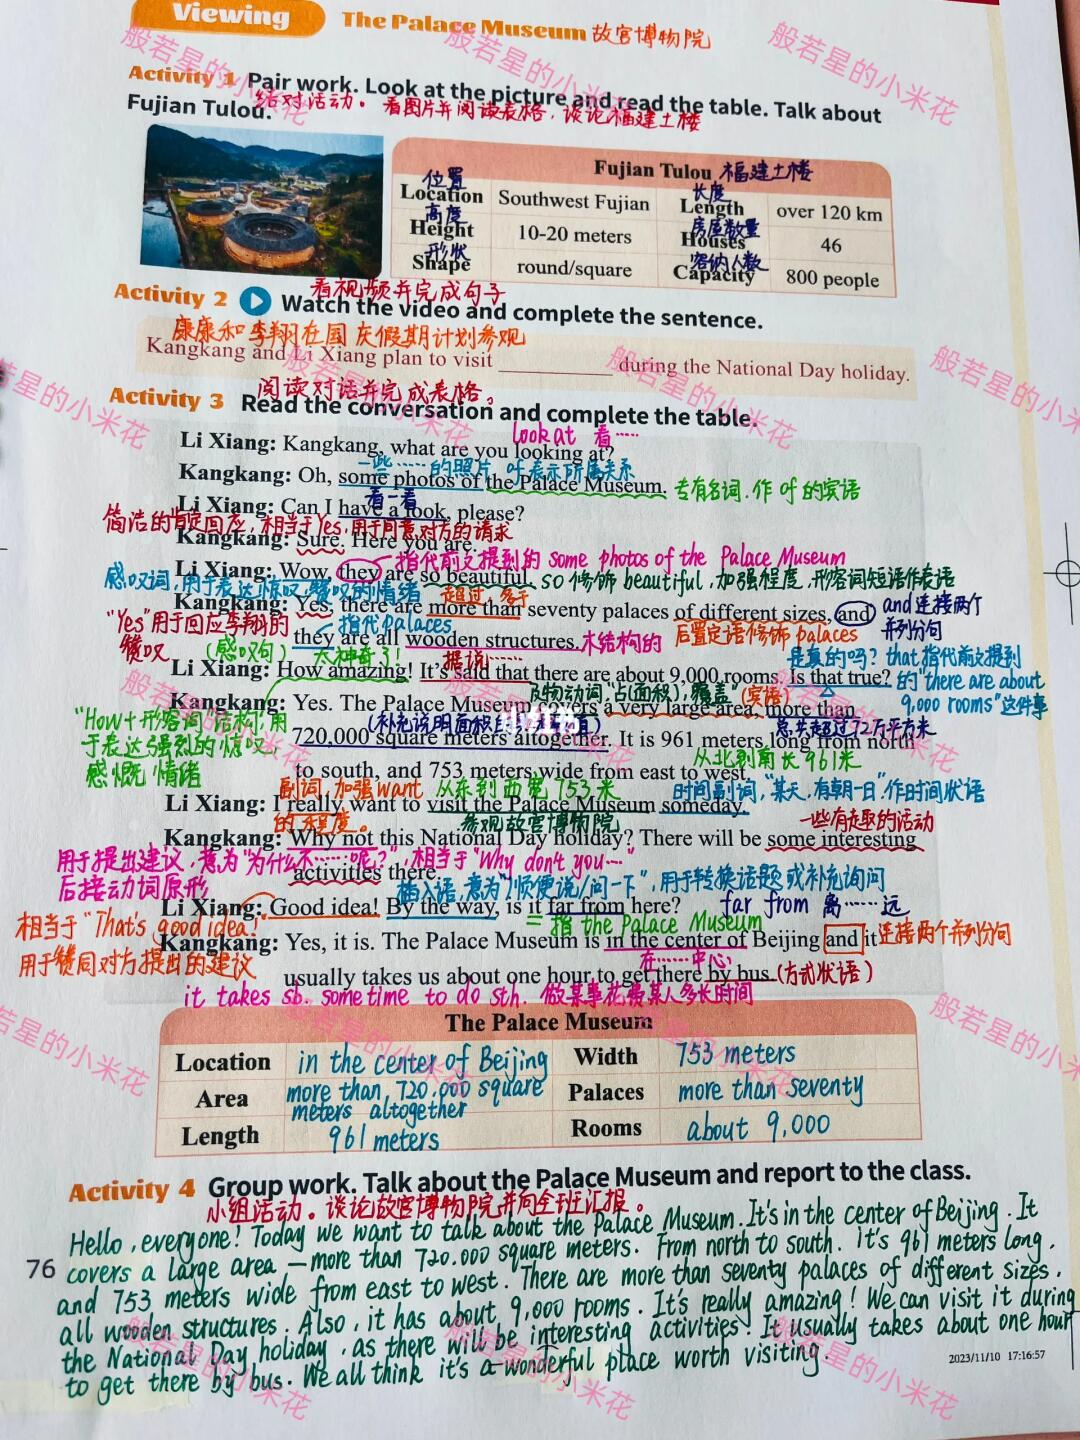 Viewing The Palace Museum 故宫博物院
Activity 1 Pair work. Look at the picture and read the table. Talk about
Fujian Tulou. 结对活动。看图片并阅读表格，谈论福建土楼
Fujian Tulou 福建土楼
位置 长度
Location Southwest Fujian Length over 120 km
高度 房屋数量
Height 10-20 meters Houses 46
形状 容纳人数
Shape round/square Capacity 800 people
看视频并完成句子
Activity 2 Watch the video and complete the sentence.
康康和李翔在国庆假期计划参观
Kangkang and Li Xiang plan to visit __________ during the National Day holiday.
阅读对话并完成表格。
Activity 3 Read the conversation and complete the table.
look at 看……
Li Xiang: Kangkang, what are you looking at?
一些……的照片 of表示所属关系
Kangkang: Oh, some photos of the Palace Museum. 专有名词.作of的宾语
看一看
Li Xiang: Can I have a look, please?
简洁的肯定回应，相当于Yes，用于同意对方的请求
Kangkang: Sure. Here you are.
指代前文提到的 some photos of the Palace Museum
Li Xiang: Wow, they are so beautiful. so修饰beautiful，加强程度，形容词短语作表语
感叹词，用于表达惊叹，赞叹的情绪 超过，多于
Kangkang: Yes, there are more than seventy palaces of different sizes, and and连接两个
并列分句
"Yes"用于回应李翔的
赞叹
指代palaces
they are all wooden structures. 木结构的 后置定语修饰palaces
(感叹句) 太神奇了! 据说…… 是真的吗？that指代前文提到
Li Xiang: How amazing! It's said that there are about 9,000 rooms. Is that true? 的"there are about
9,000 rooms"这件事
及物动词"占(面积)，覆盖" (宾语)
Kangkang: Yes. The Palace Museum covers a very large area, more than
"How+形容词"结构，用
于表达强烈的惊叹，
感慨情绪
总共超过72万平方米
720,000 square meters altogether. It is 961 meters long from north
从北到南长961米
to south, and 753 meters wide from east to west.
副词，加强want 从东到西宽753米 时间副词，"某天，有朝一日"，作时间状语
Li Xiang: I really want to visit the Palace Museum someday.
的程度。 参观故宫博物院 一些有趣的活动
Kangkang: Why not this National Day holiday? There will be some interesting
用于提出建议，意为"为什么不……呢？"，相当于"Why don't you…"
后接动词原形
activities there.
插入语，意为"顺便说/问一下"，用于转换话题或补充询问
Li Xiang: Good idea! By the way, is it far from here? far from 离……远
相当于"That's good idea!"
用于赞同对方提出的建议
= 指 the Palace Museum
Kangkang: Yes, it is. The Palace Museum is in the center of Beijing and it 连接两个并列分句
在……中心
usually takes us about one hour to get there by bus. (方式状语)
it takes sb. some time to do sth. 做某事花费某人多长时间
The Palace Museum
Location in the center of Beijing Width 753 meters
Area more than 720.000 square meters altogether Palaces more than seventy
Length 961 meters Rooms about 9,000
Activity 4 Group work. Talk about the Palace Museum and report to the class.
小组活动。谈论故宫博物院并向全班汇报。
Hello, everyone! Today we want to talk about the Palace Museum. It's in the center of Beijing. It
covers a large area — more than 720.000 square meters. From north to south. It's 961 meters long,
and 753 meters wide from east to west. There are more than seventy palaces of different sizes.
all wooden structures. Also, it has about 9,000 rooms. It's really amazing! We can visit it during
the National Day holiday, as there will be interesting activities. It usually takes about one hour
to get there by bus. We all think it's a wonderful place worth visiting.
76
2023/11/10 17:16:57
般若星的小米花